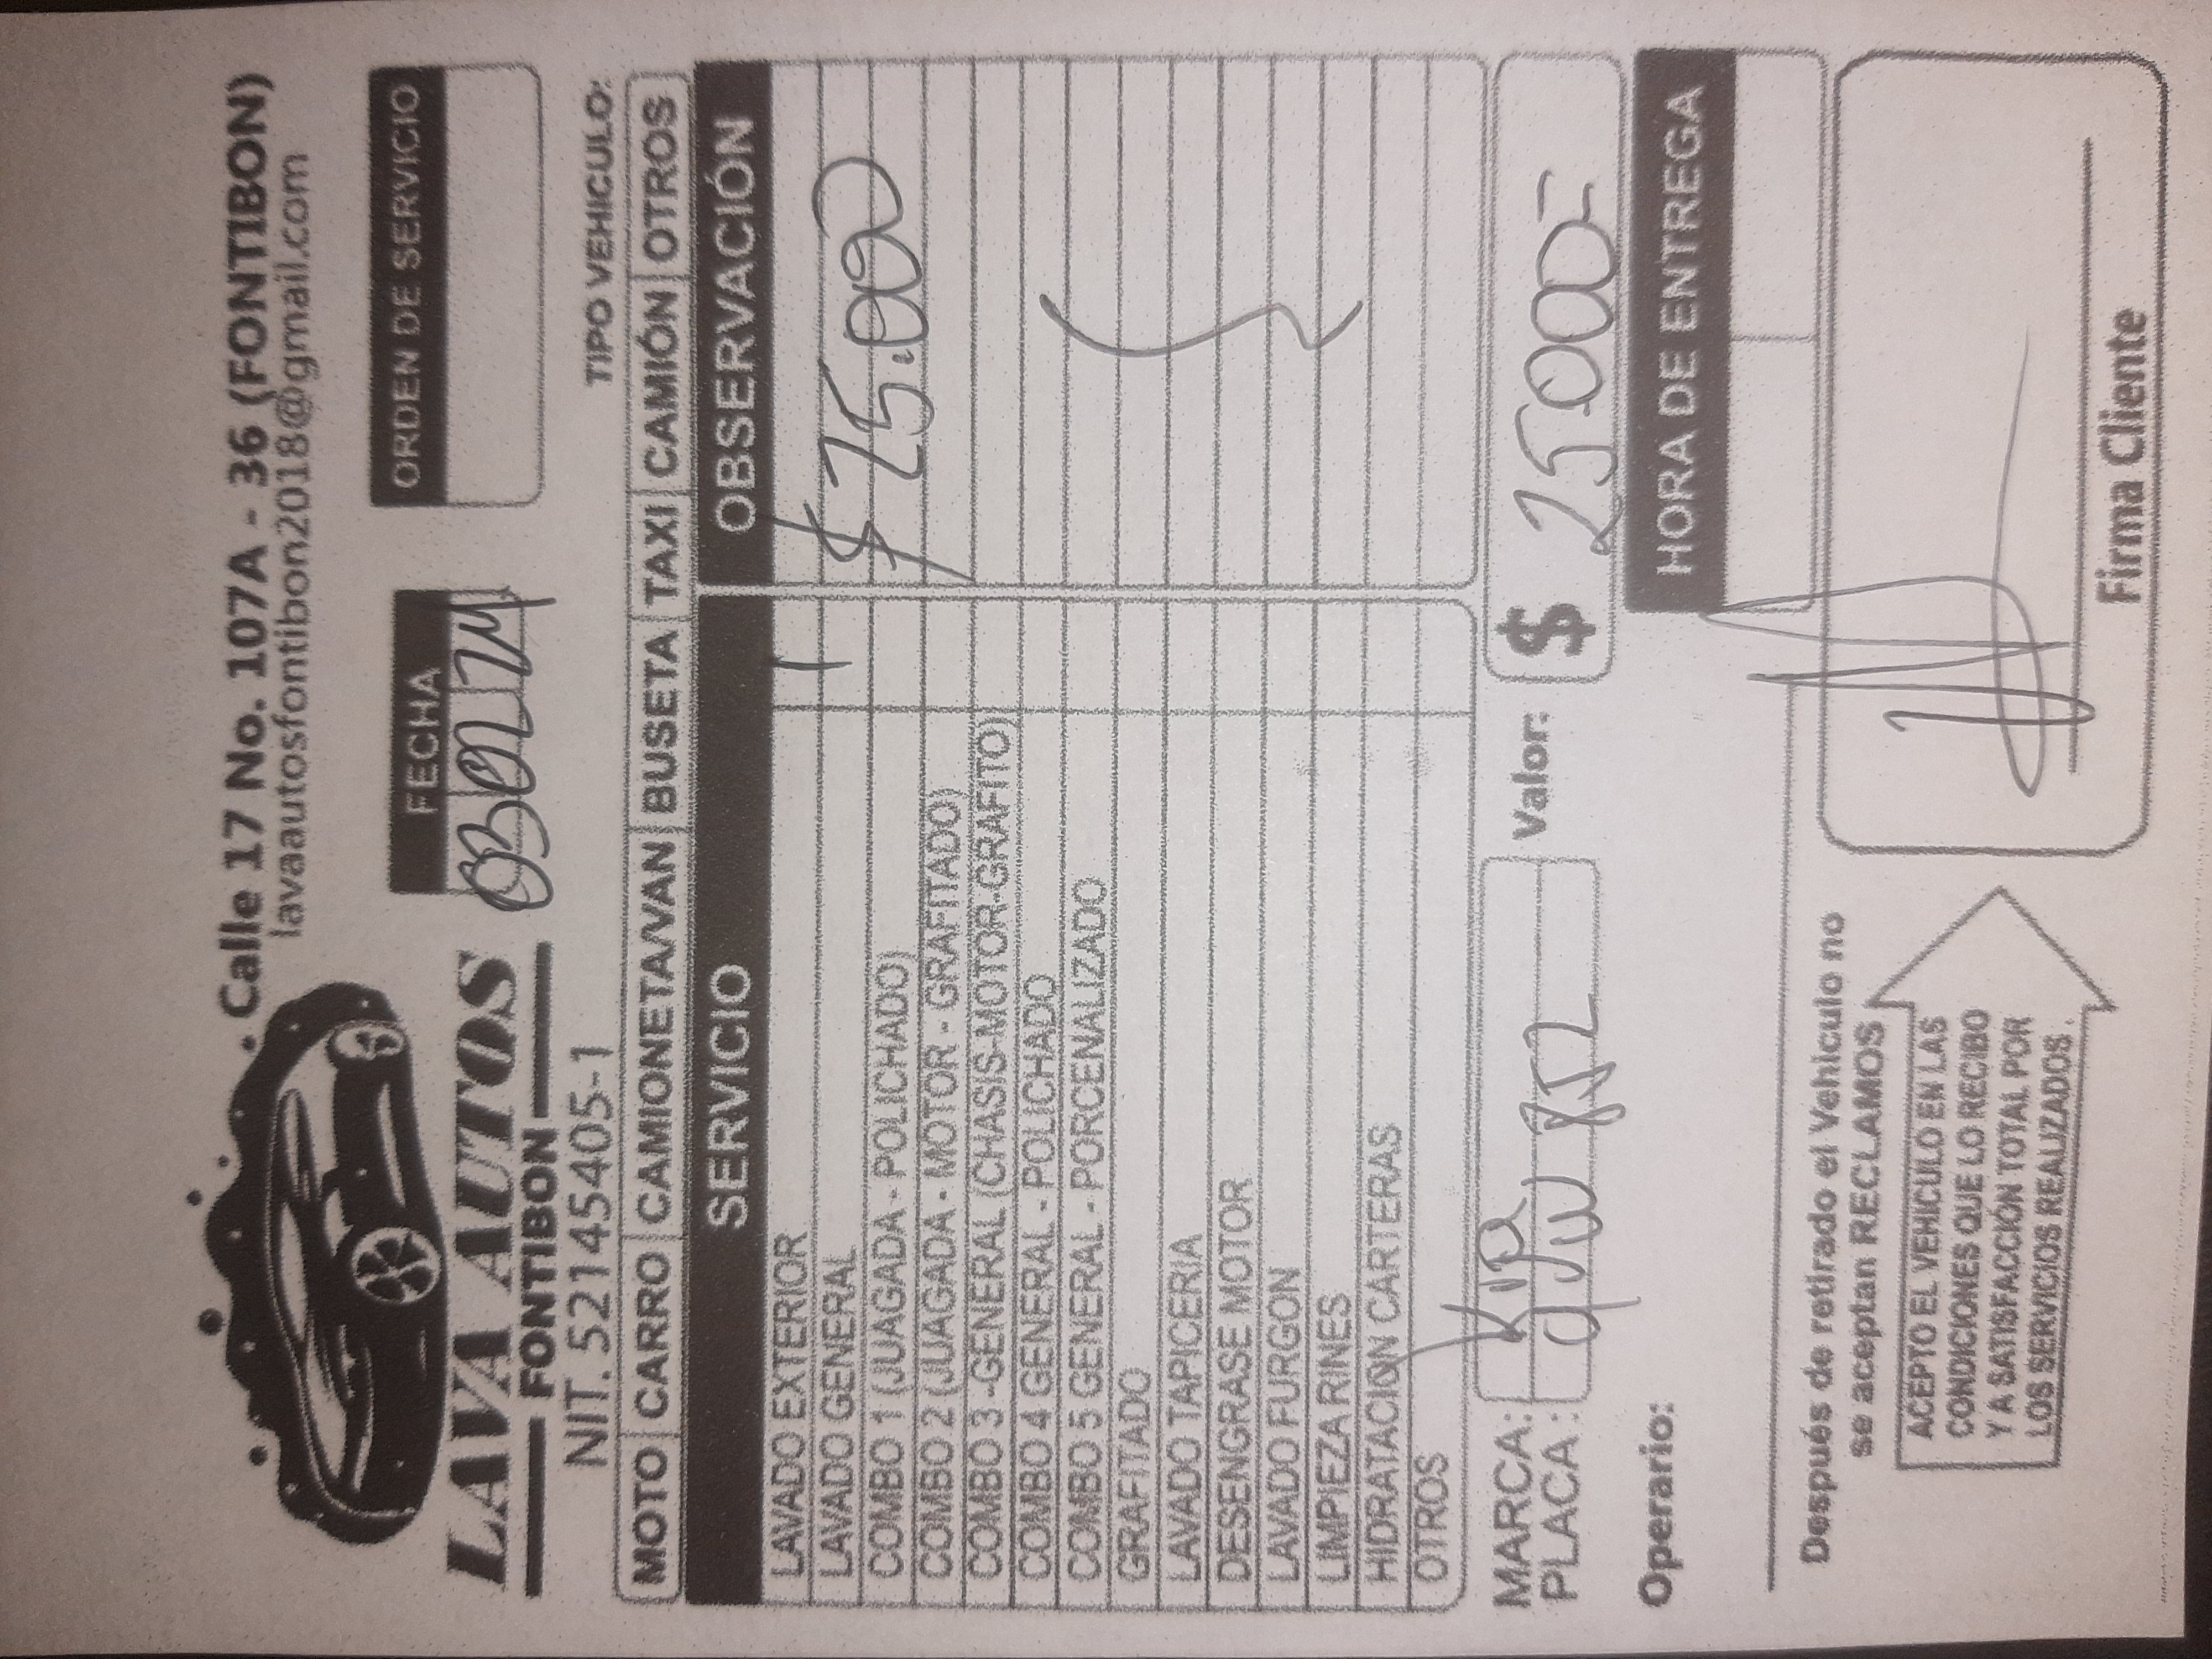 Calle 17 No. 107A - 36 (FONTIBON)
lavaautosfontibon2018@gmail.com
LAVA AUTOS
FONTIBON
NIT. 52145405-1
FECHA
ORDEN DE SERVICIO
TIPO VEHICULO:
MOTO CARRO CAMIONETA/VAN BUSETA TAXI CAMIÓN OTROS
SERVICIO OBSERVACIÓN
LAVADO EXTERIOR
LAVADO GENERAL
COMBO 1 (JUAGADA - POLICHADO)
COMBO 2 (JUAGADA - MOTOR - GRAFITADO)
COMBO 3 -GENERAL (CHASIS-MOTOR-GRAFITO)
COMBO 4 GENERAL - POLICHADO
COMBO 5 GENERAL - PORCENALIZADO
GRAFITADO
LAVADO TAPICERIA
DESENGRASE MOTOR
LAVADO FURGON
LIMPIEZA RINES
HIDRATACION CARTERAS
OTROS
MARCA: Kia
PLACA:
Valor: $ 25000
Operario:
HORA DE ENTREGA
Después de retirado el Vehiculo no
se aceptan RECLAMOS
ACEPTO EL VEHICULO EN LAS
CONDICIONES QUE LO RECIBO
Y A SATISFACCIÓN TOTAL POR
LOS SERVICIOS REALIZADOS.
Firma Cliente